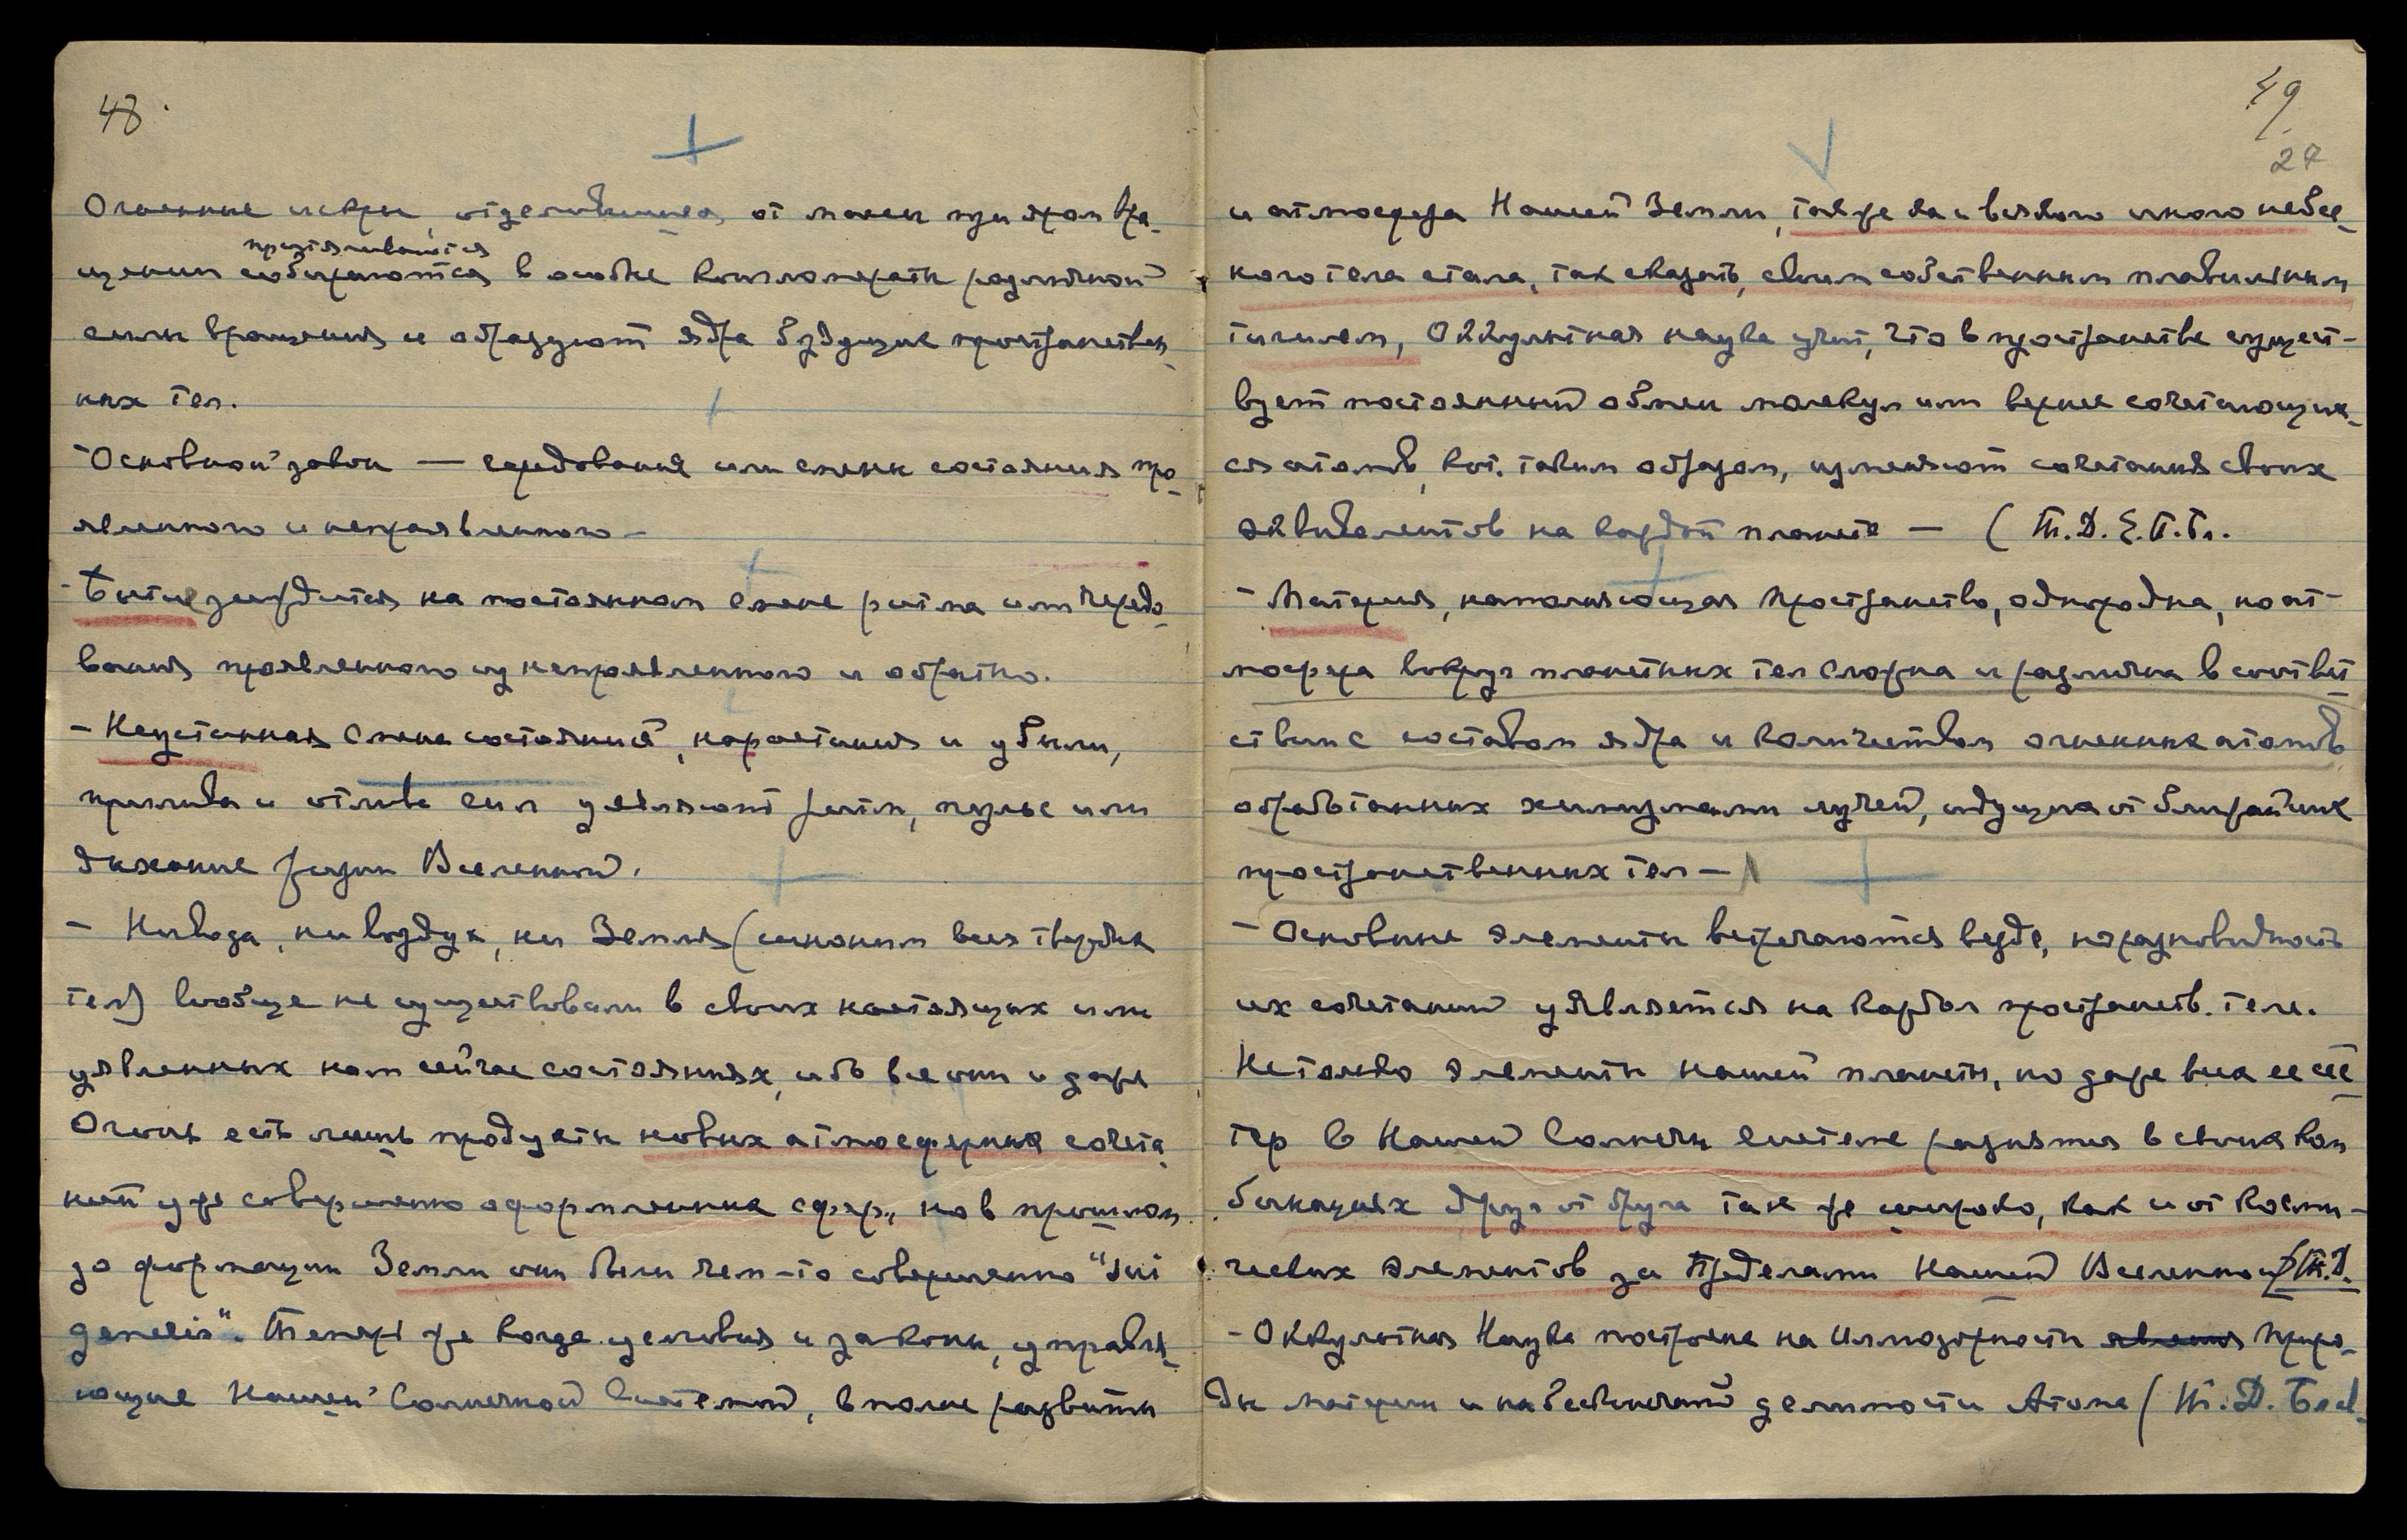 48
Огненные искры, отделившиеся от массы при этом вра-
притягиваются
щении собираются в особые конгломераты различной
силы вращения и образуют ядра будущих пространствен-
ных тел.
Основной закон — чередования или смены состояния про-
явленного и непроявленного —
- Бытие зиждится на постоянной смене ритма или чередо-
вания проявленного из непроявленного и обратно.
- Неустанная смена состояний, нарастания и убыли,
прилива и отлива сил уявляют ритм, пульс или
дыхание жизни Вселенной.
- Ни вода, ни воздух, ни Земля (синоним всех твердых
тел) вообще не существовали в своих настоящих или
уявленных нам сейчас состояниях, ибо все они и даже
Огонь есть лишь продукты новых атмосферных сочета-
ний уже совершенно оформленных сфер, но в прошлом
до формации Земли они были чем-то совершенно "sui
generis". Теперь же когда условия и законы, управля-
ющие Нашей Солнечной Системой, вполне развиты
49
27
и атмосфера Нашей Земли, также как и всякого иного небес-
ного тела стала, так сказать, своим собственным плавильным
тигилем, Оккультная наука учит, что в пространстве сущест-
вует постоянный обмен молекул или вернее сочетающих-
ся атомов, кот. таким образом, изменяют сочетания своих
эквивалентов на каждой планете — (Т.Д. Е.П.Бл.
- Материя, наполняющая пространство, однородна, но ат-
мосфера вокруг планетных тел сложна и различна в соответ-
ствии с составом ядра и количеством огненных атомов,
обработанных химизмами лучей, идущих от ближайших
пространственных тел —
- Основные элементы встречаются везде, но разновидность
их сочетаний уявляется на каждом пространств. теле.
Не только элементы нашей планеты, но даже всех ее сес-
тер в Нашей Солнечн Системе разнятся в своих ком
бинациях друг от друга так же широко, как и от косми-
ческих элементов за Пределами Нашей Вселенной (Т.Д.
- Оккультная Наука построена на Иллюзорности явления Приро-
ды материи и на бесконечной делимости Атома (Т.Д. Блав-